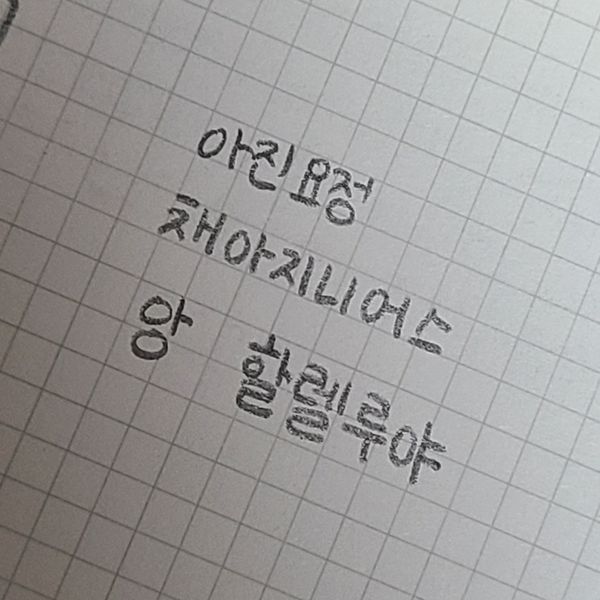 아진요정
채아지니어스
앙 할렐루야